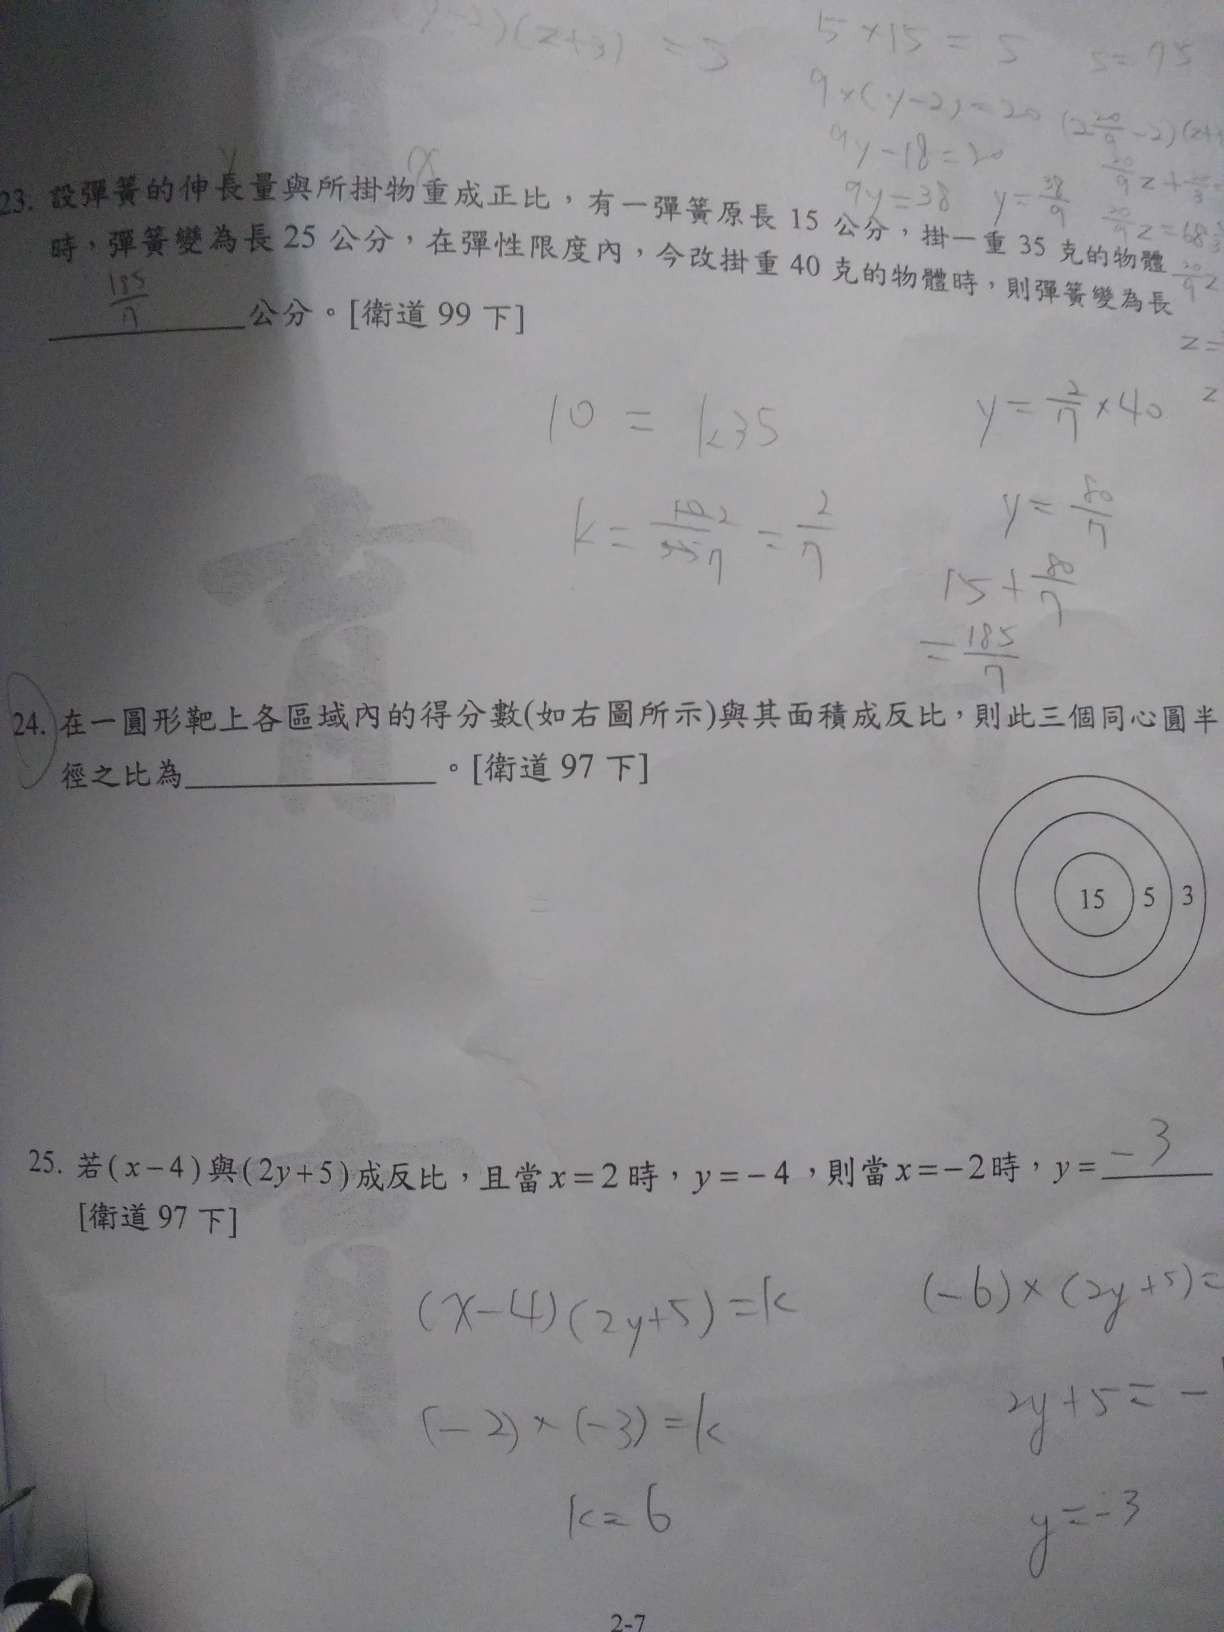 )(z+3) = 5
5×15 = 5
5=75
9×(y-2)=20
9y-18=20
9y=38
y=38/9
23. 設彈簧的伸長量與所掛物重成正比，有一彈簧原長 15 公分，掛一重 35 克的物體
時，彈簧變為長 25 公分，在彈性限度內，今改掛重 40 克的物體時，則彈簧變為長
185/7 公分。[衛道 99 下]
10 = k35
k = 10/35 2/7 = 2/7
y = 2/7 ×40
y = 80/7
15 + 80/7
= 185/7
24. 在一圓形靶上各區域內的得分數(如右圖所示)與其面積成反比，則此三個同心圓半
徑之比為________。[衛道 97 下]
15 5 3
25. 若(x−4)與(2y+5)成反比，且當x=2時，y=−4，則當x=−2時，y= -3
[衛道 97 下]
(x-4)(2y+5)=k
(-2)×(-3)=k
k=6
(-6)×(2y+5)=
2y+5=-
y=-3
2-7